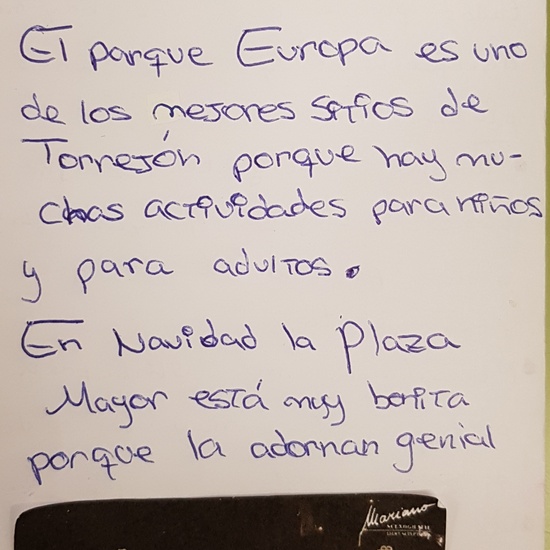 El parque Europa es uno
de los mejores sitios de
Torrejón porque hay mu-
chas actividades para niños
y para adultos.
En Navidad la Plaza
Mayor está muy bonita
porque la adornan genial
Mariano